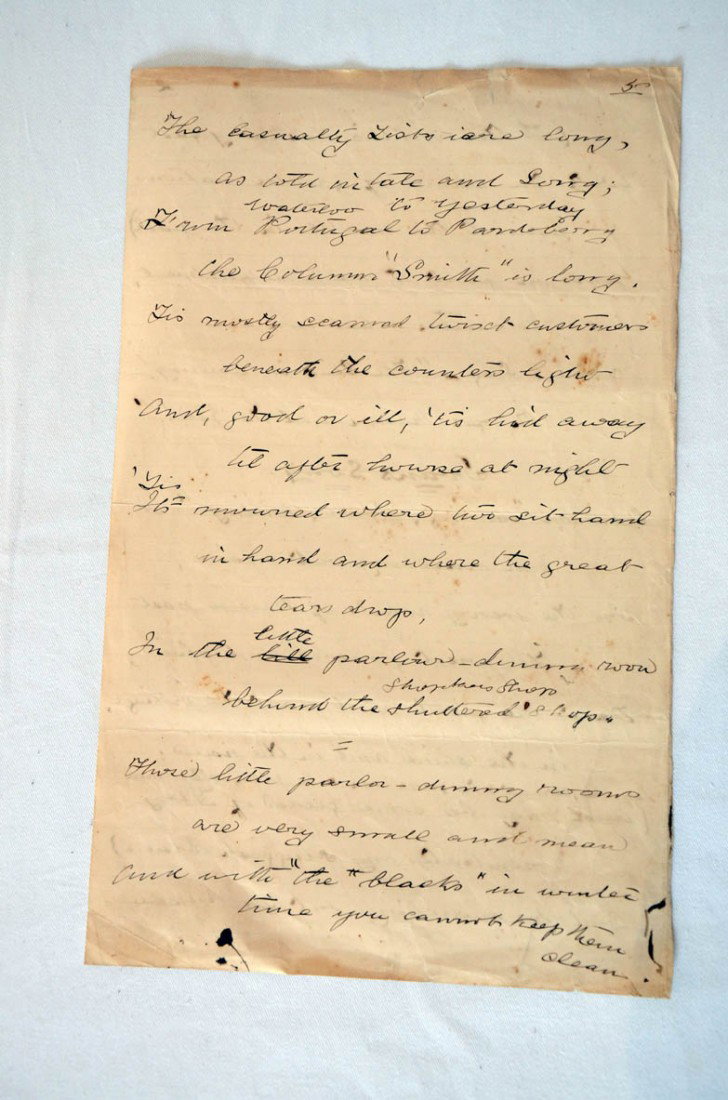 5
The Casualty Lists are long,
as told in tale and Song;
Waterloo to Yesterday
From Portugal to Paardeberg
the Column "Smith" is long.
Tis mostly scanned twixt customers
beneath the counters light
And, good or ill, 'tis hid away
til after hours at night
'Tis
Its mourned where two sit hand
in hand and where the great
tears drop,
little
In the parlour-dining room
behind the shuttered shop.
=
Those little parlor-dining rooms
are very small and mean
And with "the "blacks" in winter
time you cannot keep them
clean.